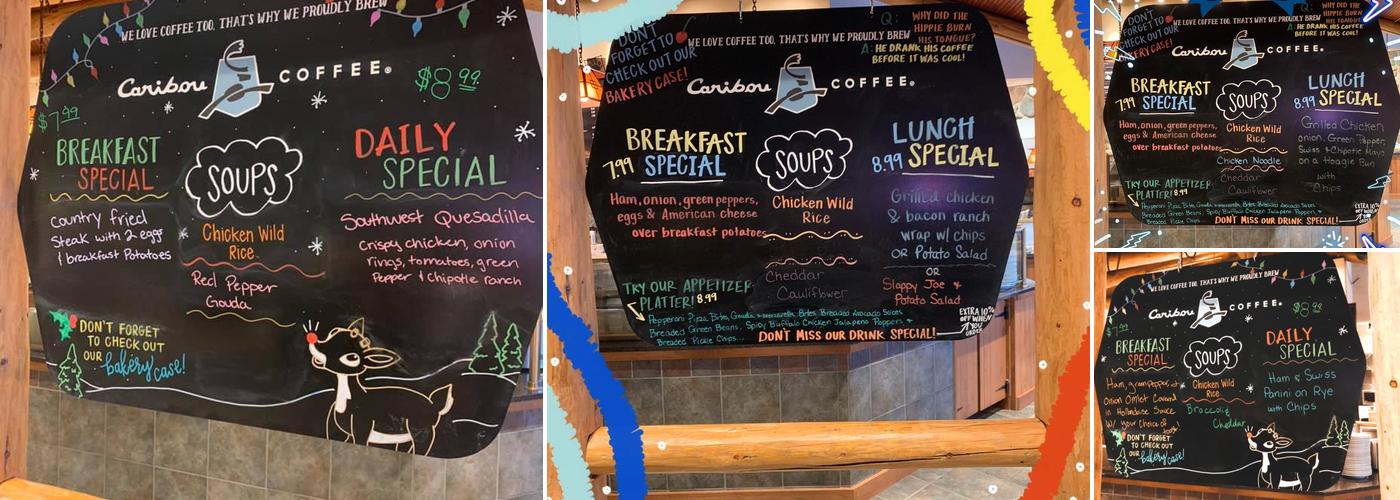 WE LOVE COFFEE TOO, THAT'S WHY WE PROUDLY BREW
Caribou COFFEE®
$7.99
$8.99
BREAKFAST
SPECIAL
Country fried
Steak with 2 eggs
& breakfast Potatoes
SOUPS
Chicken Wild
Rice
Red Pepper
Gouda
DAILY
SPECIAL
Southwest Quesadilla
Crispy chicken, onion
rings, tomatoes, green
Pepper & Chipotle ranch
DON'T FORGET
TO CHECK OUT
OUR bakery case!
DON'T
FORGET TO
CHECK OUT OUR
BAKERY CASE!
WE LOVE COFFEE TOO, THAT'S WHY WE PROUDLY BREW
Q: WHY DID THE
HIPPIE BURN
HIS TONGUE?
A: HE DRANK HIS COFFEE
BEFORE IT WAS COOL!
Caribou COFFEE®
BREAKFAST
7.99 SPECIAL
Ham, onion, green peppers,
eggs & American cheese
over breakfast potatoes
SOUPS
Chicken Wild
Rice
Cheddar
Cauliflower
LUNCH
8.99 SPECIAL
Grilled chicken
& bacon ranch
wrap w/ chips
OR Potato Salad
OR
Sloppy Joe &
Potato Salad
TRY OUR APPETIZER
PLATTER! 8.99
Pepperoni Pizza Bites, Gouda & mozzarella Bites, Breaded Avocado Slices
Breaded Green Beans, Spicy Buffalo Chicken Jalapeno Poppers &
Breaded Pickle Chips...
DON'T MISS OUR DRINK SPECIAL!
EXTRA 10%
OFF WHEN
YOU
DON'T
FORGET TO
CHECK OUT OUR
BAKERY CASE!
WE LOVE COFFEE TOO, THAT'S WHY WE PROUDLY BREW
Q: WHY DID THE
HIPPIE BURN
HIS TONGUE?
A: HE DRANK HIS COFFEE
BEFORE IT WAS COOL!
Caribou COFFEE®
BREAKFAST
7.99 SPECIAL
Ham, onion, green peppers,
eggs & American cheese
over breakfast potatoes
SOUPS
Chicken Wild
Rice
Chicken Noodle
Cheddar
Cauliflower
LUNCH
8.99 SPECIAL
Grilled Chicken
onion, Green Pepper,
Swiss & Chipotle Mayo
on a Hoagie Bun
with
Chips
TRY OUR APPETIZER
PLATTER! 8.99
Pepperoni Pizza Bites, Gouda & mozzarella Bites, Breaded Avocado Slices
Breaded Green Beans, Spicy Buffalo Chicken Jalapeno Poppers &
Breaded Pickle Chips...
DON'T MISS OUR DRINK SPECIAL!
EXTRA 10%
OFF WHEN
WE LOVE COFFEE TOO, THAT'S WHY WE PROUDLY BREW
Caribou COFFEE®
$7.99
$8.99
BREAKFAST
SPECIAL
Ham, green pepper, &
Onion Omlet Covered
in Hollandaise Sauce
w/ your Choice of
toast
SOUPS
Chicken Wild
Rice
Broccoli &
Cheddar
DAILY
SPECIAL
Ham & Swiss
Panini on Rye
with Chips
DON'T FORGET
TO CHECK OUT
OUR bakery case!